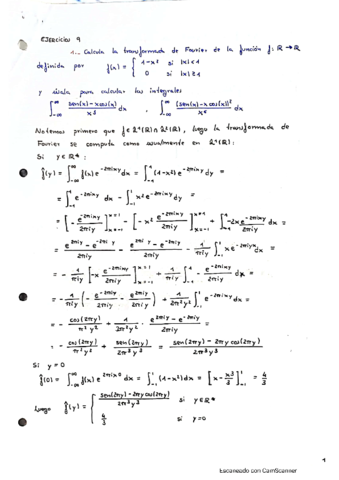 EJERCICIOS 9
1.- Calcula la transformada de Fourier de la función f: ℝ → ℝ
definida por f(x) = { 1-x² si |x|<1
0 si |x|≥1
y úsala para calcular las integrales
∫_{-∞}^{∞} (sen(x) - x cos(x))/x³ dx , ∫_{-∞}^{∞} (sen(x) - x cos(x))²/x⁶ dx
Notemos primero que f ∈ L¹(ℝ) ∩ L²(ℝ), luego la transformada de
Fourier se computa como usualmente en L¹(ℝ):
Si y ∈ ℝ*:
f̂(y) = ∫_{-∞}^{∞} f(x) e^{-2πixy} dx = ∫_{-1}^{1} (1-x²) e^{-2πixy} dy =
= ∫_{-1}^{1} e^{-2πixy} dx - ∫_{-1}^{1} x² e^{-2πixy} dy =
= [- e^{-2πixy}/2πiy]_{x=-1}^{x=1} - [-x² e^{-2πixy}/2πiy]_{x=-1}^{x=1} + ∫_{-1}^{1} -2x e^{-2πixy}/2πiy dx =
= (e^{2πiy} - e^{-2πiy})/2πiy - (e^{2πiy} - e^{-2πiy})/2πiy - 1/πiy ∫_{-1}^{1} x e^{-2πiyx} dx =
= - 1/πiy [-x e^{-2πixy}/2πiy]_{x=-1}^{x=1} + 1/πiy ∫_{-1}^{1} - e^{-2πixy}/2πiy dx =
= - 1/πiy (- e^{-2πiy}/2πiy - e^{2πiy}/2πiy) + 1/2π²y² ∫_{-1}^{1} e^{-2πixy} dx =
= - cos(2πy)/π²y² + 1/2π²y² · (e^{2πiy} - e^{-2πiy})/2πiy =
= - cos(2πy)/π²y² + sen(2πy)/2π³y³ = (sen(2πy) - 2πy cos(2πy))/2π³y³
Si y=0
f̂(0) = ∫_{-∞}^{∞} f(x) e^{2πix0} dx = ∫_{-1}^{1} (1-x²) dx = [x - x³/3]_{-1}^{1} = 4/3
Luego f̂(y) = { (sen(2πy) - 2πy cos(2πy))/2π³y³ si y∈ℝ*
4/3 si y=0
1
Escaneado con CamScanner